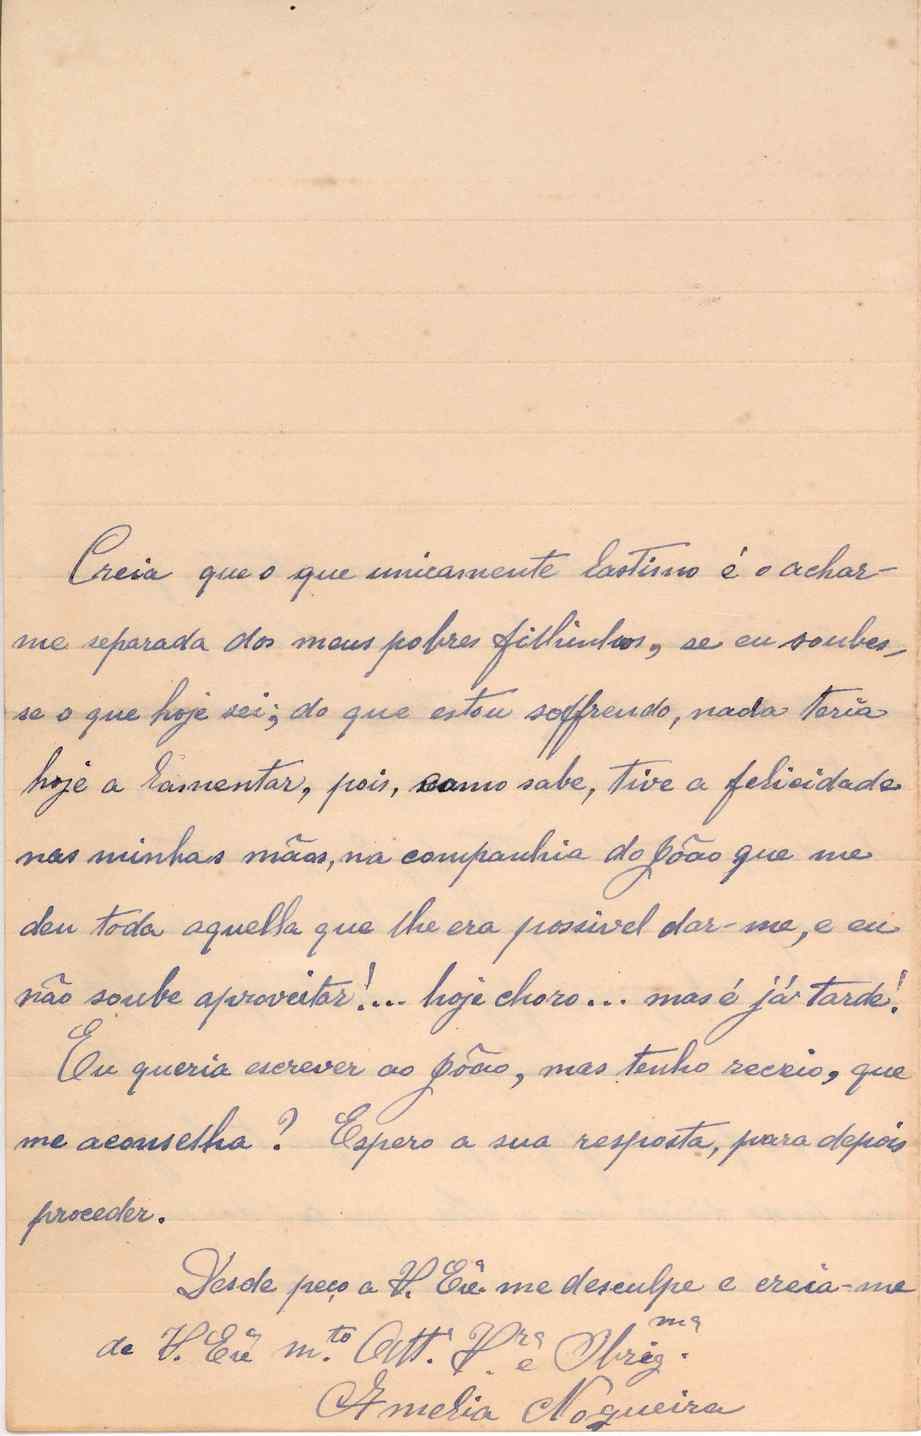 Creia que o que unicamente lastimo é o achar-
me separada dos meus pobres filhinhos, se eu soubes-
se o que hoje sei; do que estou soffrendo, nada teria
hoje a lamentar, pois, como sabe, tive a felicidade
nas minhas mãos, na companhia do João que me
deu toda aquella que lhe era possivel dar-me, e eu
não soube aproveitar!... hoje choro... mas é já tarde!
Eu queria escrever ao João, mas tenho receio, que
me aconselha? Espero a sua resposta, para depois
proceder.
Desde peço a V. Exª me desculpe e creia-me
de V. Exª m.to Att.ª V.rª e Obrig.mª
Amelia Nogueira